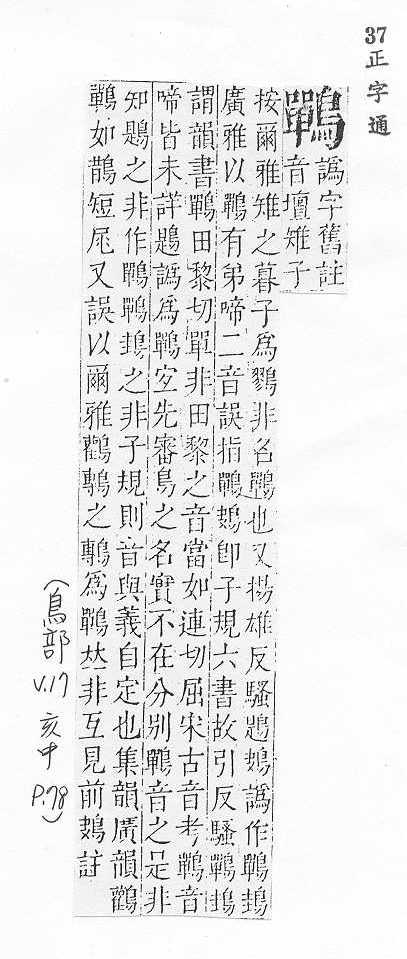 37正字通
鷤
譌字舊註
音壇雉子
按爾雅雉之暮子爲鷚非名鷤也又揚雄反騷鶗鴂譌作鷤
廣雅以鷤有弟啼二音誤指鷤鴂卽子規六書故引反騷鷤
謂韻書鷤田黎切單非田黎之音當如連切屈宋古音考鷤音
啼皆未詳鶗譌爲鷤宐先審鳥之名實不在分別鷤音之是非
知鶗之非作鷤鷤之非子規則音與義自定也集韻廣韻鸛
鷤如鵲短尾又誤以爾雅鸛鷒之鷒爲鷤𠀤非互見前鴂註
(鳥部 V.17 亥中 P.78)